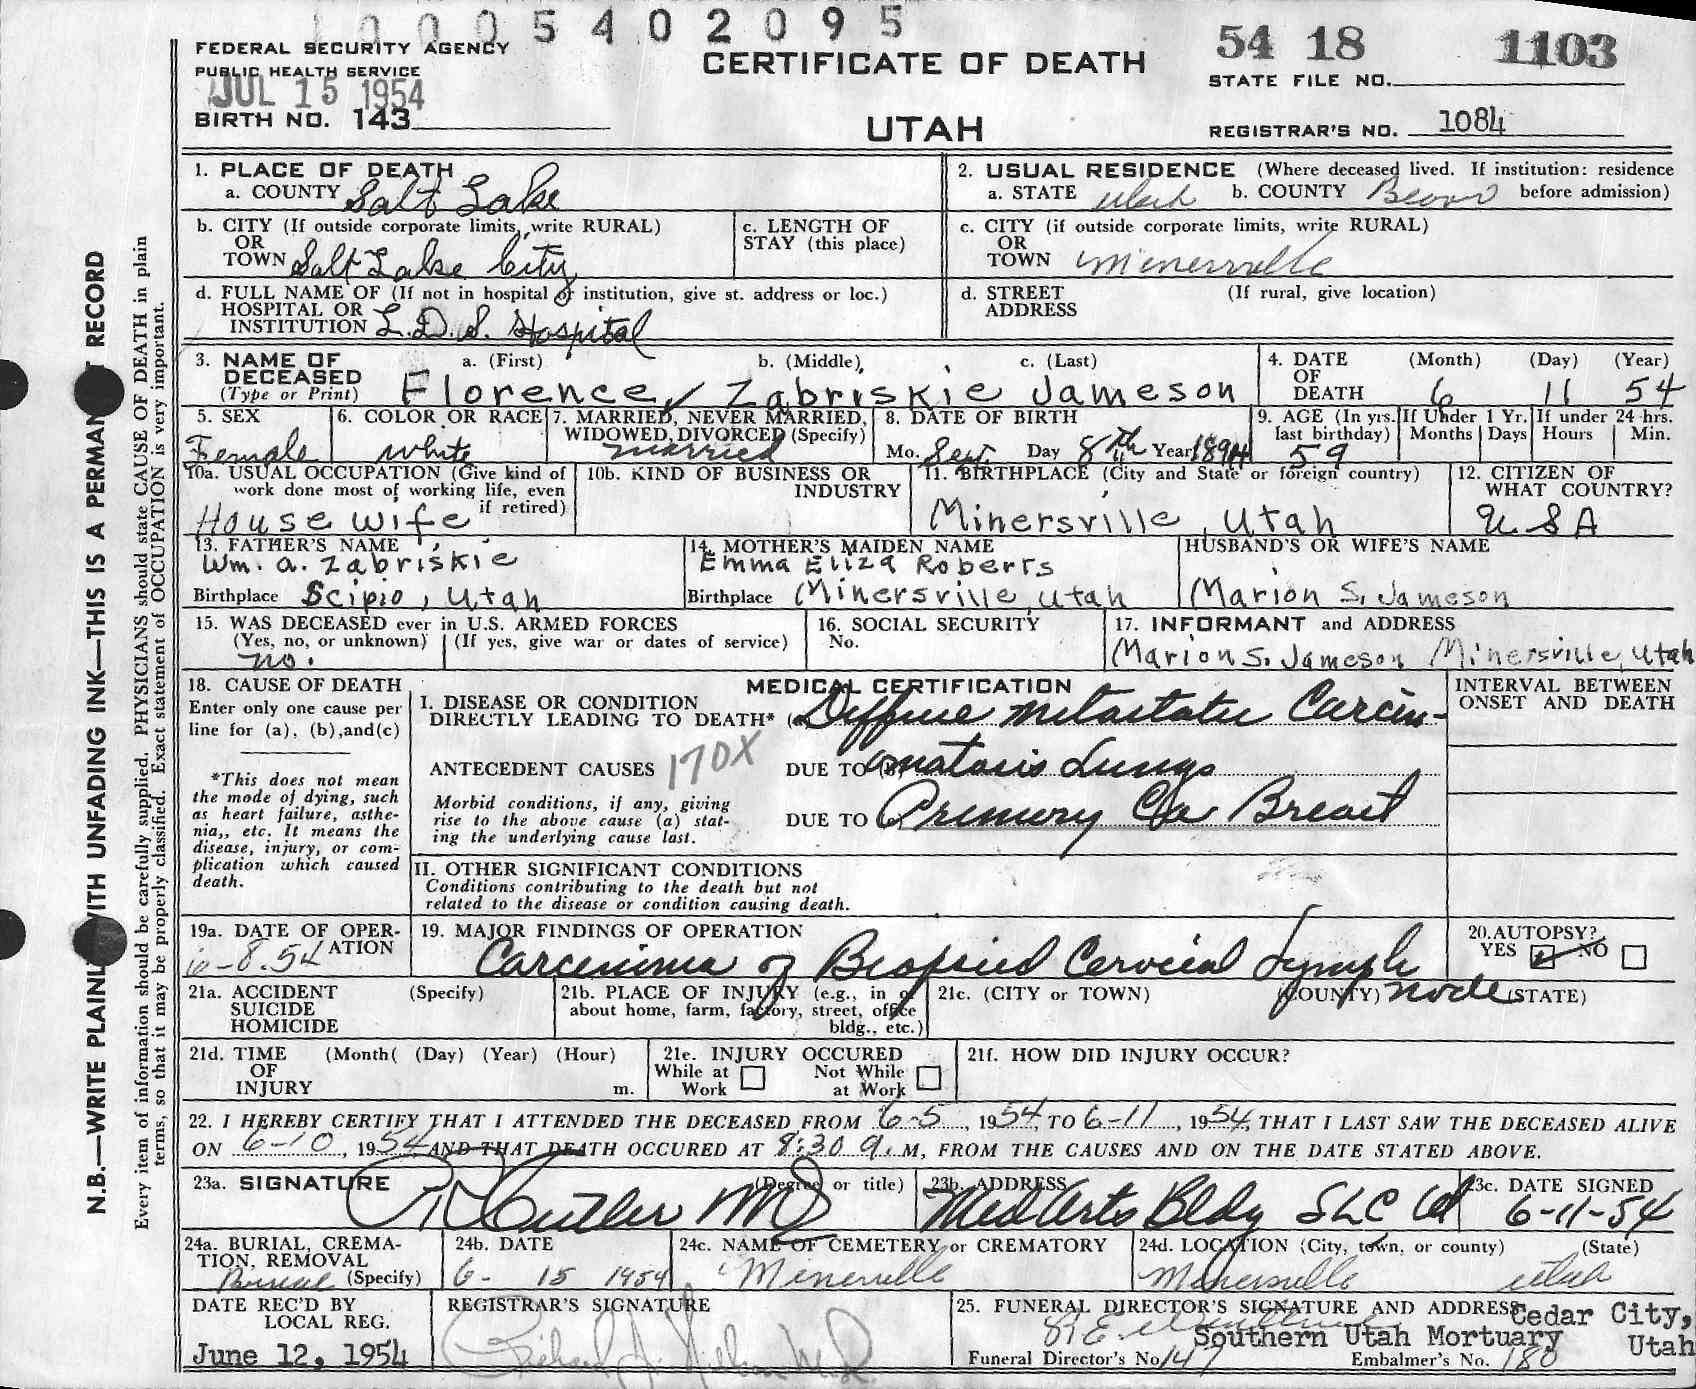 1000540209 5
FEDERAL SECURITY AGENCY
PUBLIC HEALTH SERVICE
JUL 15 1954
BIRTH NO. 143
CERTIFICATE OF DEATH
UTAH
54 18 1103
STATE FILE NO.
REGISTRAR'S NO. 1084
N.B.—WRITE PLAINLY WITH UNFADING INK—THIS IS A PERMANENT RECORD
Every item of information should be carefully supplied. PHYSICIANS should state CAUSE OF DEATH in plain
terms, so that it may be properly classified. Exact statement of OCCUPATION is very important.
1. PLACE OF DEATH
a. COUNTY Salt Lake
2. USUAL RESIDENCE (Where deceased lived. If institution: residence
a. STATE Utah b. COUNTY Beaver before admission)
b. CITY (If outside corporate limits, write RURAL)
OR
TOWN Salt Lake City
c. LENGTH OF
STAY (this place)
c. CITY (if outside corporate limits, write RURAL)
OR
TOWN Minersville
d. FULL NAME OF (If not in hospital or institution, give st. address or loc.)
HOSPITAL OR
INSTITUTION L.D.S. Hospital
d. STREET (If rural, give location)
ADDRESS
3. NAME OF a. (First) b. (Middle) c. (Last)
DECEASED
(Type or Print) Florence Zabriskie Jameson
4. DATE (Month) (Day) (Year)
OF
DEATH 6 11 54
5. SEX
Female
6. COLOR OR RACE
White
7. MARRIED, NEVER MARRIED,
WIDOWED, DIVORCED (Specify)
married
8. DATE OF BIRTH
Mo. Sept. Day 8th Year 1894
9. AGE (In yrs.
last birthday)
59
If Under 1 Yr.
Months Days
If under 24 hrs.
Hours Min.
10a. USUAL OCCUPATION (Give kind of
work done most of working life, even
if retired)
House wife
10b. KIND OF BUSINESS OR
INDUSTRY
11. BIRTHPLACE (City and State or foreign country)
Minersville, Utah
12. CITIZEN OF
WHAT COUNTRY?
USA
13. FATHER'S NAME
Wm. A. Zabriskie
Birthplace Scipio, Utah
14. MOTHER'S MAIDEN NAME
Emma Eliza Roberts
Birthplace Minersville, Utah
HUSBAND'S OR WIFE'S NAME
Marion S. Jameson
15. WAS DECEASED ever in U.S. ARMED FORCES
(Yes, no, or unknown) (If yes, give war or dates of service)
no.
16. SOCIAL SECURITY
No.
17. INFORMANT and ADDRESS
Marion S. Jameson Minersville, Utah
18. CAUSE OF DEATH
Enter only one cause per
line for (a), (b), and (c)
*This does not mean
the mode of dying, such
as heart failure, asthe-
nia,, etc. It means the
disease, injury, or com-
plication which caused
death.
MEDICAL CERTIFICATION
I. DISEASE OR CONDITION
DIRECTLY LEADING TO DEATH* (a) Diffuse metastatic Carcin-
ANTECEDENT CAUSES 170X DUE TO (b) omatosis Lungs
Morbid conditions, if any, giving
rise to the above cause (a) stat-
ing the underlying cause last.
DUE TO (c) Primary Ca Breast
INTERVAL BETWEEN
ONSET AND DEATH
II. OTHER SIGNIFICANT CONDITIONS
Conditions contributing to the death but not
related to the disease or condition causing death.
19a. DATE OF OPER-
ATION
6-8-54
19. MAJOR FINDINGS OF OPERATION
Carcinoma of Biopsied Cervical Lymph
node
20. AUTOPSY?
YES NO
21a. ACCIDENT (Specify)
SUICIDE
HOMICIDE
21b. PLACE OF INJURY (e.g., in or
about home, farm, factory, street, office
bldg., etc.)
21c. (CITY or TOWN) (COUNTY) (STATE)
21d. TIME (Month( (Day) (Year) (Hour)
OF
INJURY m.
21e. INJURY OCCURED
While at Not While
Work at Work
21f. HOW DID INJURY OCCUR?
22. I HEREBY CERTIFY THAT I ATTENDED THE DECEASED FROM 6-5, 1954, TO 6-11, 1954, THAT I LAST SAW THE DECEASED ALIVE
ON 6-10, 1954 AND THAT DEATH OCCURED AT 8:30 a. M, FROM THE CAUSES AND ON THE DATE STATED ABOVE.
23a. SIGNATURE (Degree or title)
Cutler MD
23b. ADDRESS
Med Arts Bldg SLC Ut
23c. DATE SIGNED
6-11-54
24a. BURIAL, CREMA-
TION, REMOVAL
Burial (Specify)
24b. DATE
6- 15 1954
24c. NAME OF CEMETERY or CREMATORY
Minersville
24d. LOCATION (City, town, or county) (State)
Minersville Utah
DATE REC'D BY
LOCAL REG.
June 12, 1954
REGISTRAR'S SIGNATURE
Richard
25. FUNERAL DIRECTOR'S SIGNATURE AND ADDRESS
Cedar City,
Southern Utah Mortuary Utah
Funeral Director's No. 147 Embalmer's No. 180